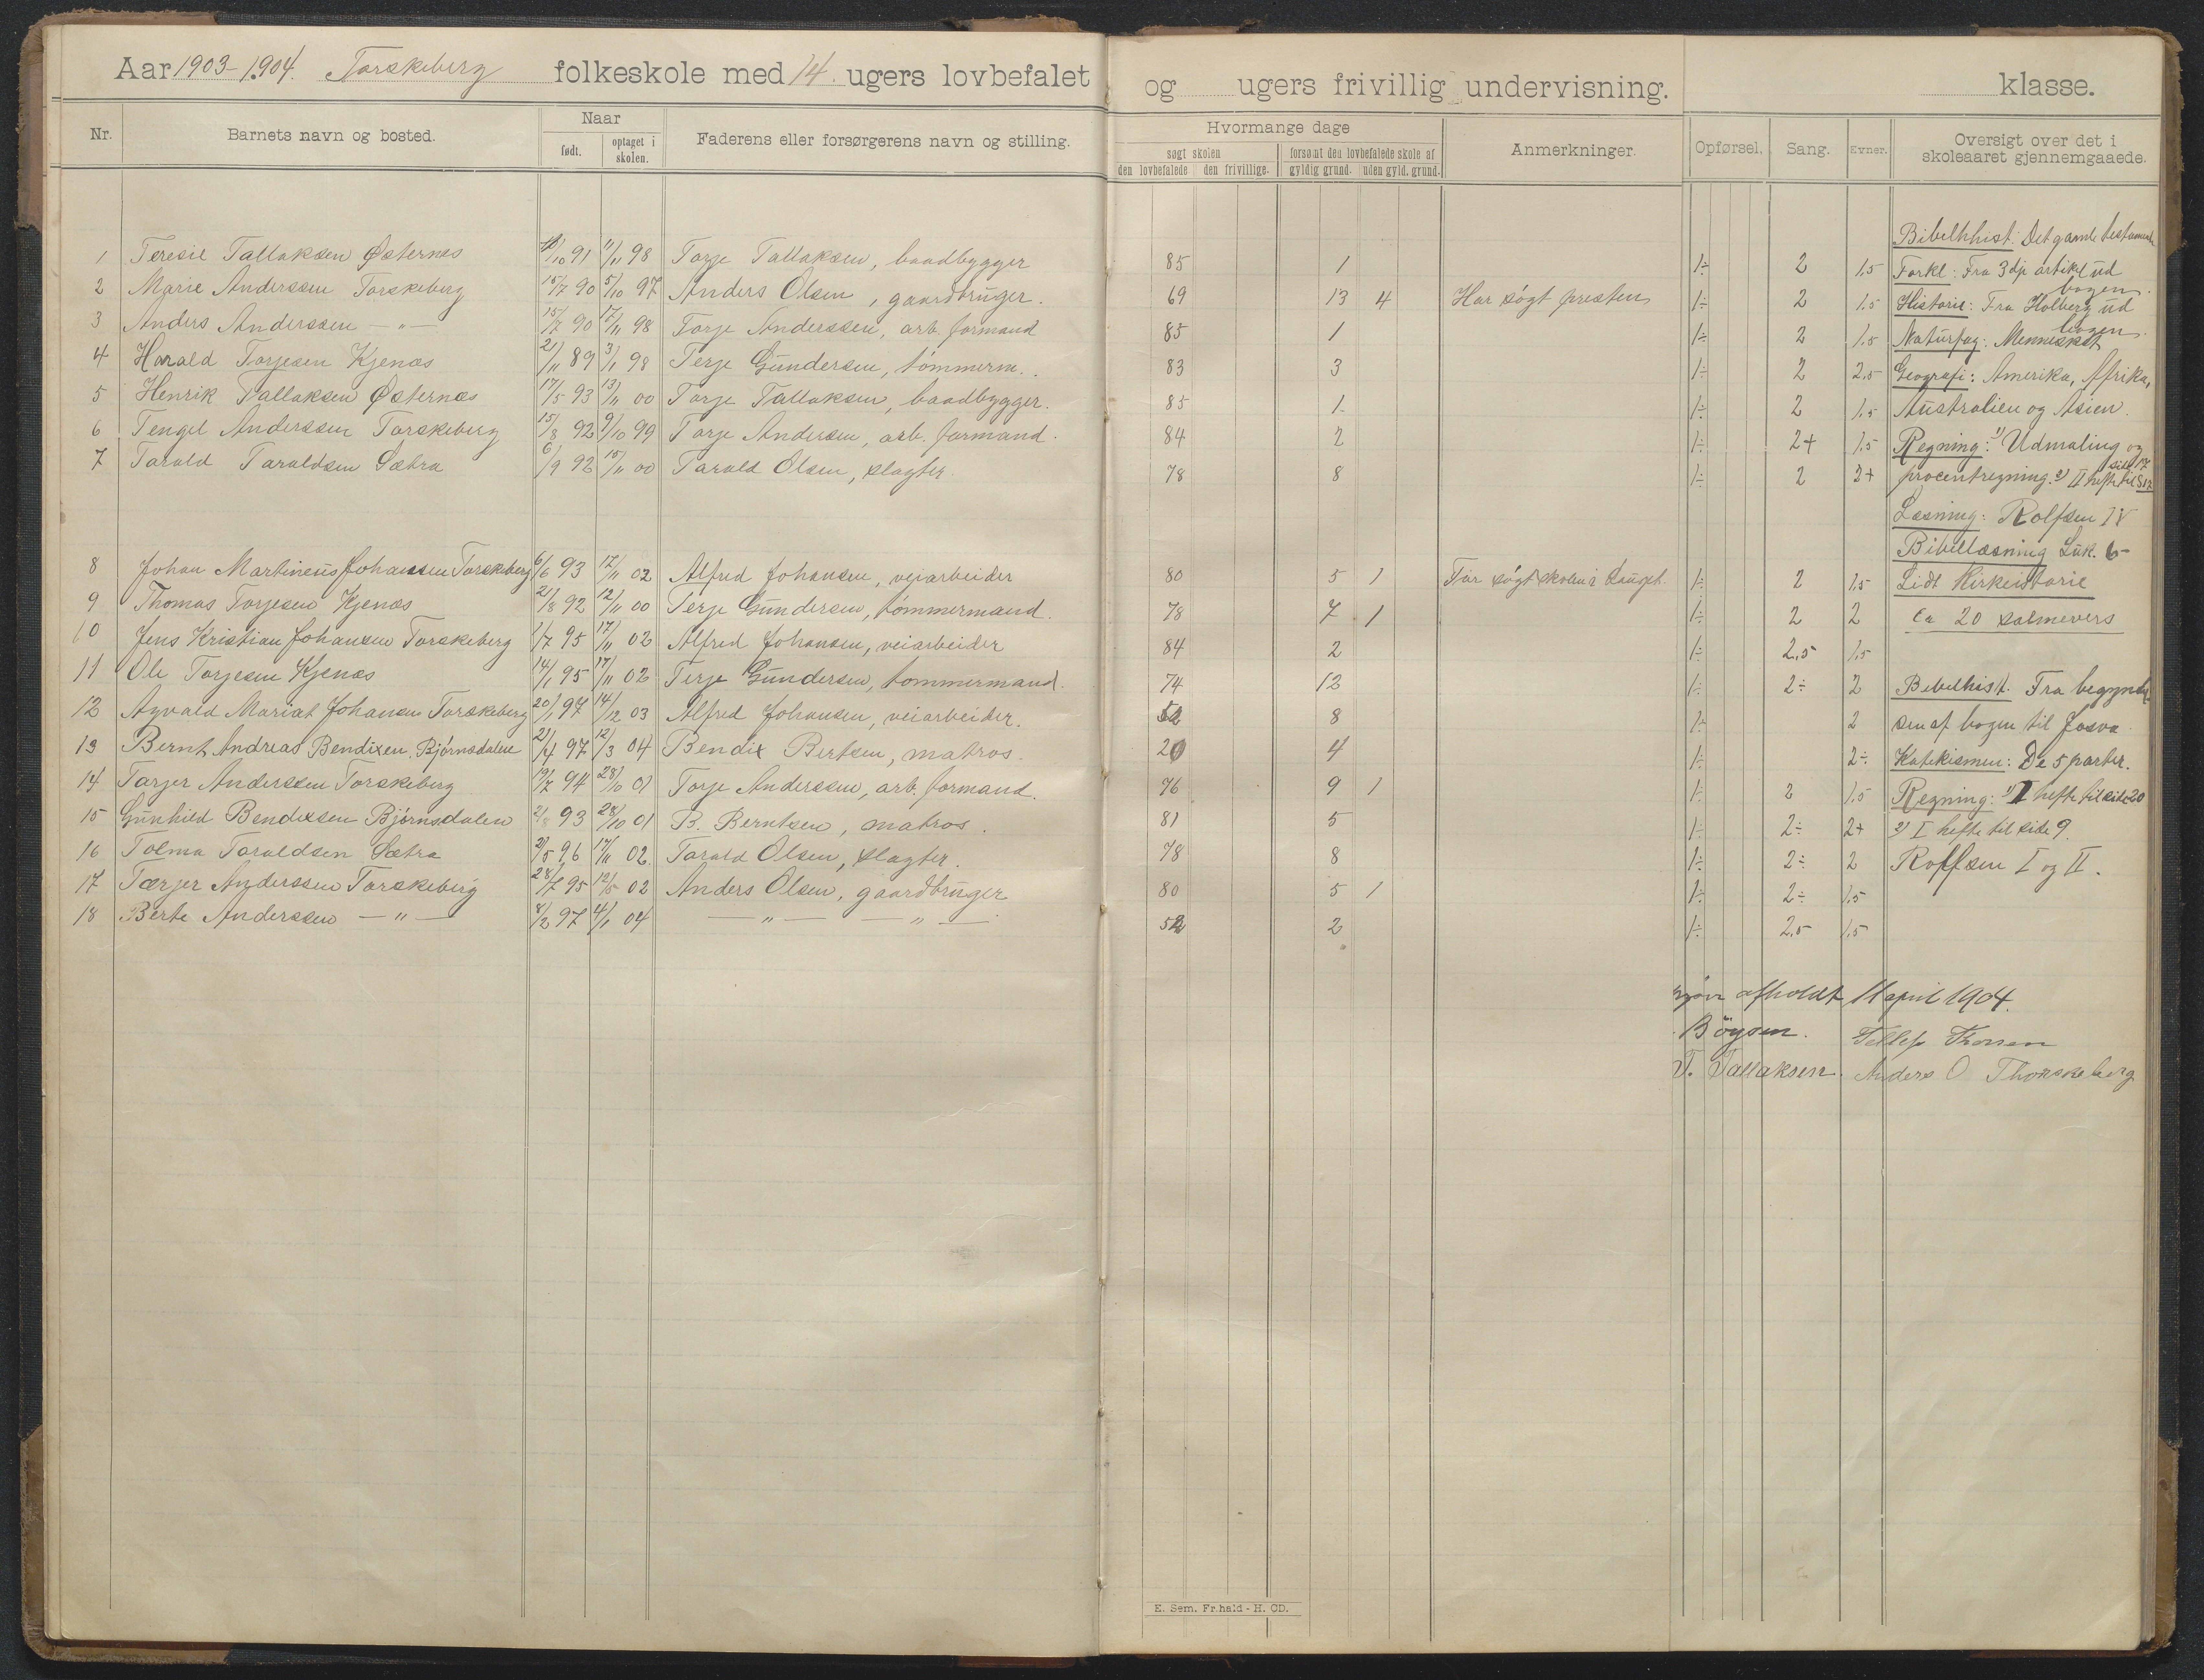 Aar 1903-1904. Torskeberg folkeskole med 14 ugers lovbefalet og ugers frivillig undervisning. klasse.
Nr. Barnets navn og bosted. Naar født. optaget i skolen. Faderens eller forsørgerens navn og stilling. Hvormange dage søgt skolen den lovbefalede den frivillige. forsømt den lovbefalede skole af gyldig grund. uden gyld. grund. Anmerkninger. Opførsel. Sang. Evner. Oversigt over det i skoleaaret gjennemgaaede.
Bibelhist: Det gamle testamente
1 Teresie Tallaksen Østernes 18/10 91 11/11 98 Torje Tallaksen, baadbygger 85 1 1÷ 2 1.5 Forkl: Fra 3dje artikel ud bogen.
2 Marie Anderssen Torskeberg 15/7 90 5/10 97 Anders Olsen, gaardbruger. 69 13 4 Har søgt presten 1÷ 2 1.5 Historie: Fra Holberg ud bogen.
3 Anders Anderssen — " — 15/7 90 17/11 98 Torje Anderssen, arb. formand 85 1 1÷ 2 1.5 Naturfag: Mennesket
4 Harald Torjesen Kjenæs 21/11 89 3/1 98 Terje Gundersen, tømmerm. 83 3 1÷ 2 2.5 Geografi: Amerika, Afrika,
5 Henrik Tallaksen Østernæs 17/5 93 13/11 00 Torje Tallaksen, baadbygger. 85 1 1÷ 2 1.5 Australien og Asien.
6 Tengel Anderssen Torskeberg 15/8 92 9/10 99 Torje Andersen, arb. formand. 84 2 1÷ 2+ 1.5 Regning: 1) Udmaling og
7 Tarald Taraldsen Sætra 6/9 92 15/11 00 Tarald Olsen, slagter. 78 8 1÷ 2 2+ procentregning. 2) II hefte til S 17
Læsning: Rolfsen IV
Bibellæsning Luk. 6-
8 Johan Martineus Johansen Torskeberg 6/6 93 17/11 02 Alfred Johansen, veiarbeider 80 5 1 Før søgt skolen i Lauget. 1÷ 2 1.5 Lidt Kirkeistorie
9 Thomas Torjesen Kjenæs 21/8 92 12/11 00 Terje Gundersen, tømmermand. 78 7 1 1÷ 2 2 Ca 20 salmevers
10 Jens Kristian Johansen Torskeberg 1/7 95 17/11 02 Alfred Johansen, veiarbeider 84 2 1÷ 2,5 1.5
11 Ole Torjesen Kjenæs 14/1 95 17/11 02 Terje Gundersen, tømmermand. 74 12 1÷ 2÷ 2 Bibelhist. Fra begyndel-
12 Agvald Mariat Johansen Torskeberg 20/1 97 14/12 03 Alfred Johansen, veiarbeider. 52 8 1÷ 2 sen af bogen til Josva
13 Bernt Andreas Bendixen, Bjørnsdalene 21/4 97 12/3 04 Bendix Bertsen, matros. 20 4 1÷ 2÷ Katekismen: De 5 parter.
14 Tarjer Anderssen Torskeberg 19/7 94 28/10 01 Torje Anderssen, arb. formand. 76 9 1 1÷ 2 1.5 Regning: 1) I hefte til side 20
15 Gunhild Bendixsen Bjørnsdalen 2/8 93 28/10 01 B. Berntsen, matros. 81 5 1÷ 2÷ 2+ 2) I hefte til side 9.
16 Tolma Taraldsen Sætra 2/5 96 17/11 02 Tarald Olsen, slagter. 78 8 1÷ 2÷ 2 Rolfsen I og II.
17 Tærjer Anderssen Torskeberg 28/7 95 12/5 02 Anders Olsen, gaardbruger 80 5 1 1÷ 2÷ 1.5
18 Berte Anderssen — " — 8/2 97 4/1 04 — " — — " — 52 2 1÷ 2,5 1.5
afholdt 11 april 1904.
Böysen. Tellef
T. Tallaksen. Anders O Thorskeberg
E. Sem. Fr.hald - H. CD.